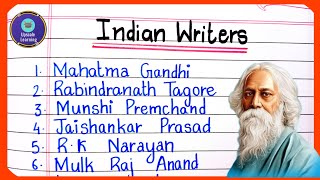 Upaam
Learning
Indian Writers
1. Mahatma Gandhi
2. Rabindranath Tagore
3. Munshi Premchand
4. Jaishankar Prasad
5. R.K Narayan
6. Mulk Raj Anand